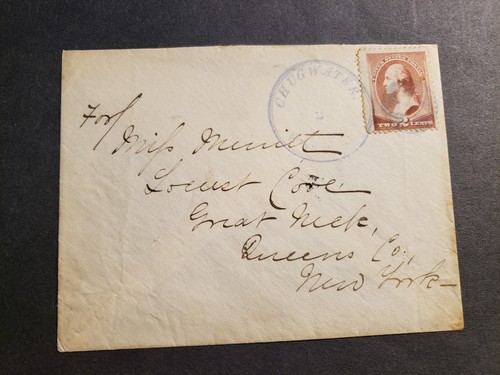 CHUGWATER
2
UNITED STATES POSTAGE
TWO 2 CENTS
For/
Miss Merritt
Locust Cove
Great Neck,
Queens Co.,
New York—